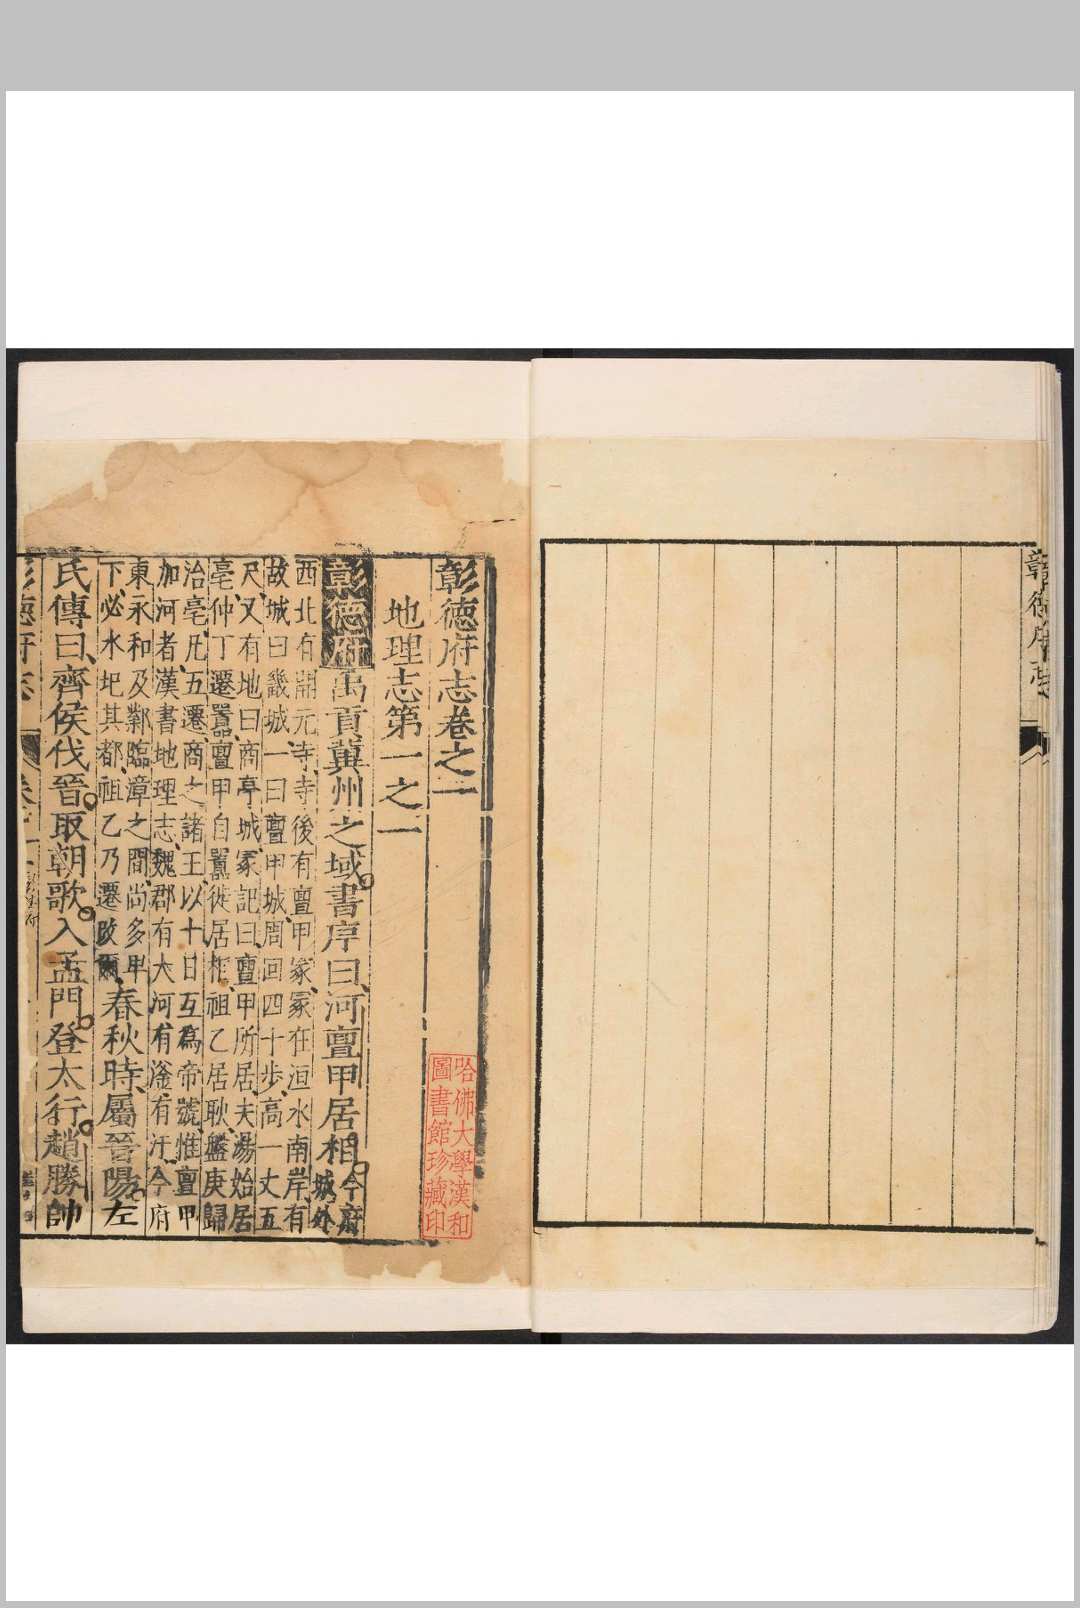 彰德府志
彰德府志卷之一
地理志第一之一
彰德府禹貢冀州之域書序曰河亶甲居相今府
城外
西北有開元寺寺後有亶甲冢冢在洹水南岸有
故城曰畿城一曰亶甲城周回四十步高一丈五
尺又有地曰商亭城冢記曰亶甲所居夫湯始居
亳仲丁遷囂亶甲自囂徙居相祖乙居耿盤庚歸
治亳凡五遷商之諸王以十日互爲帝號惟亶甲
加河者漢書地理志魏郡有大河有滏有汙今府
東永和及鄴臨漳之間尚多甲
下必水圯其都祖乙乃遷故爾春秋時屬晉陽左
氏傳曰齊侯伐晉取朝歌入孟門登太行趙勝帥
彰德府志
哈佛大學漢和
圖書館珍藏印